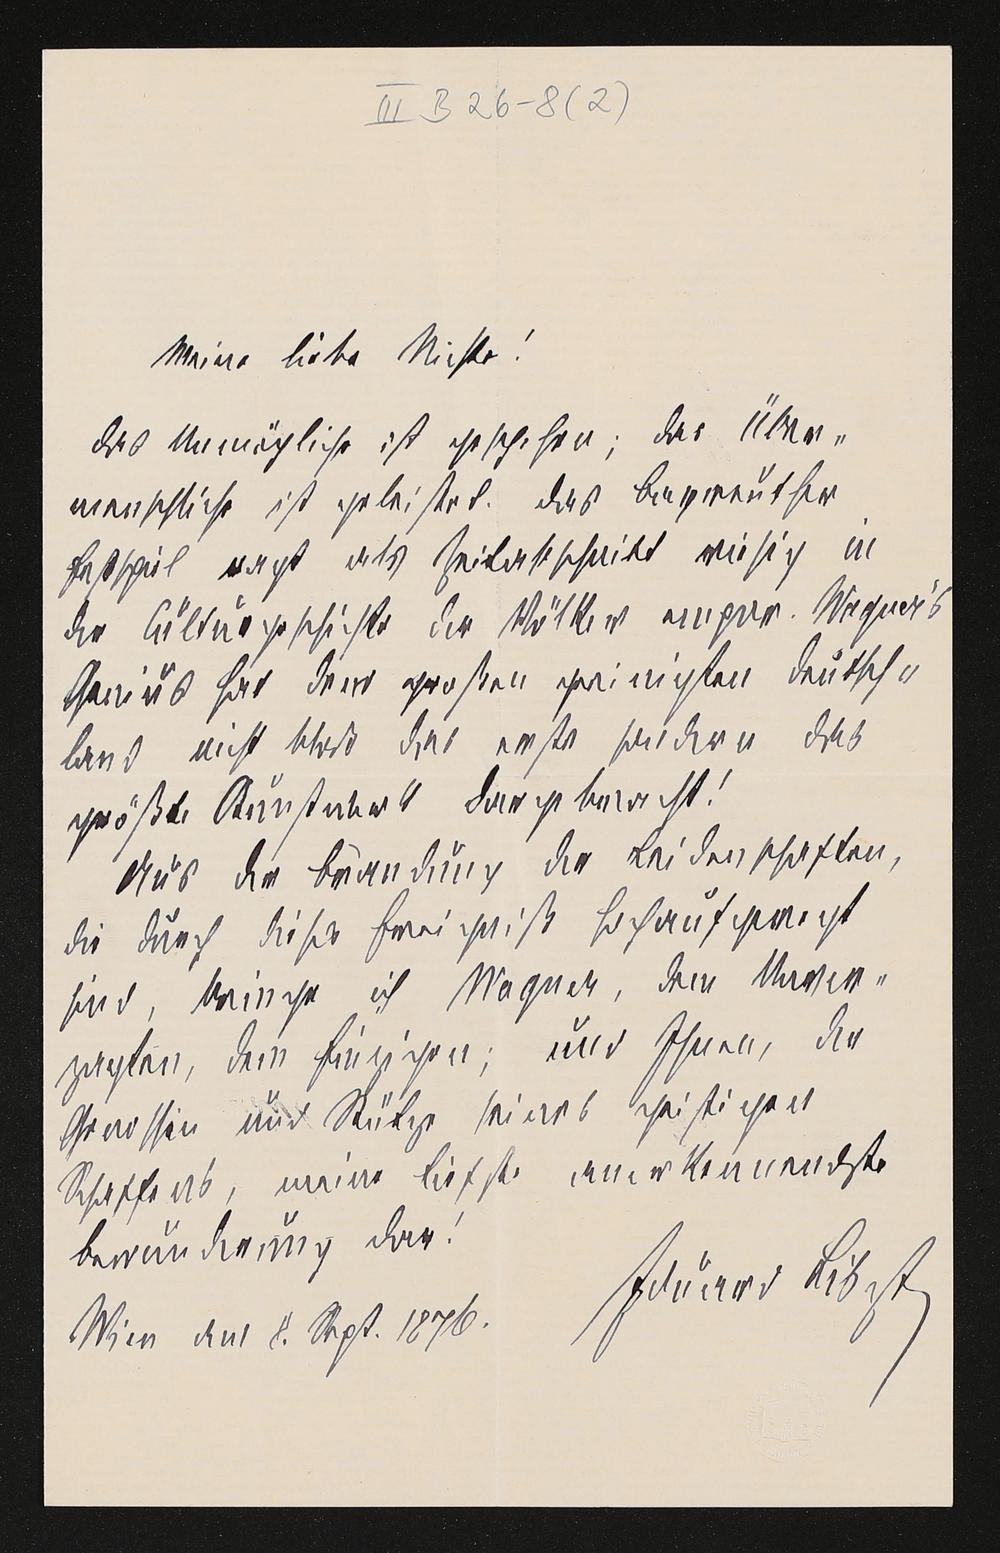 III B 26-8(2)
Meine liebe Nichte!
Das Unmögliche ist geschehen; das Über„
menschliche ist geleistet. Das Bayreuther
Festspiel ragt als Zeitabschnitt riesig in
der Culturgeschichte der Völker empor. Wagner's
Genius hat dem großen geeinigten Deutsch„
land nicht blos das erste sondern das
größte Kunstwerk dargebracht!
Aus der Brandung der Leidenschaften,
die durch dieses Ereigniß hochaufgeregt
sind, bringe ich Wagner, dem Unver„
zagten, dem Einzigen; und Ihnen, der
Genossin und Stütze seines geistigen
Schaffens, meine tiefste anerkennendste
Bewunderung dar!
Eduard Liszt
Wien den 8. Sept. 1876.